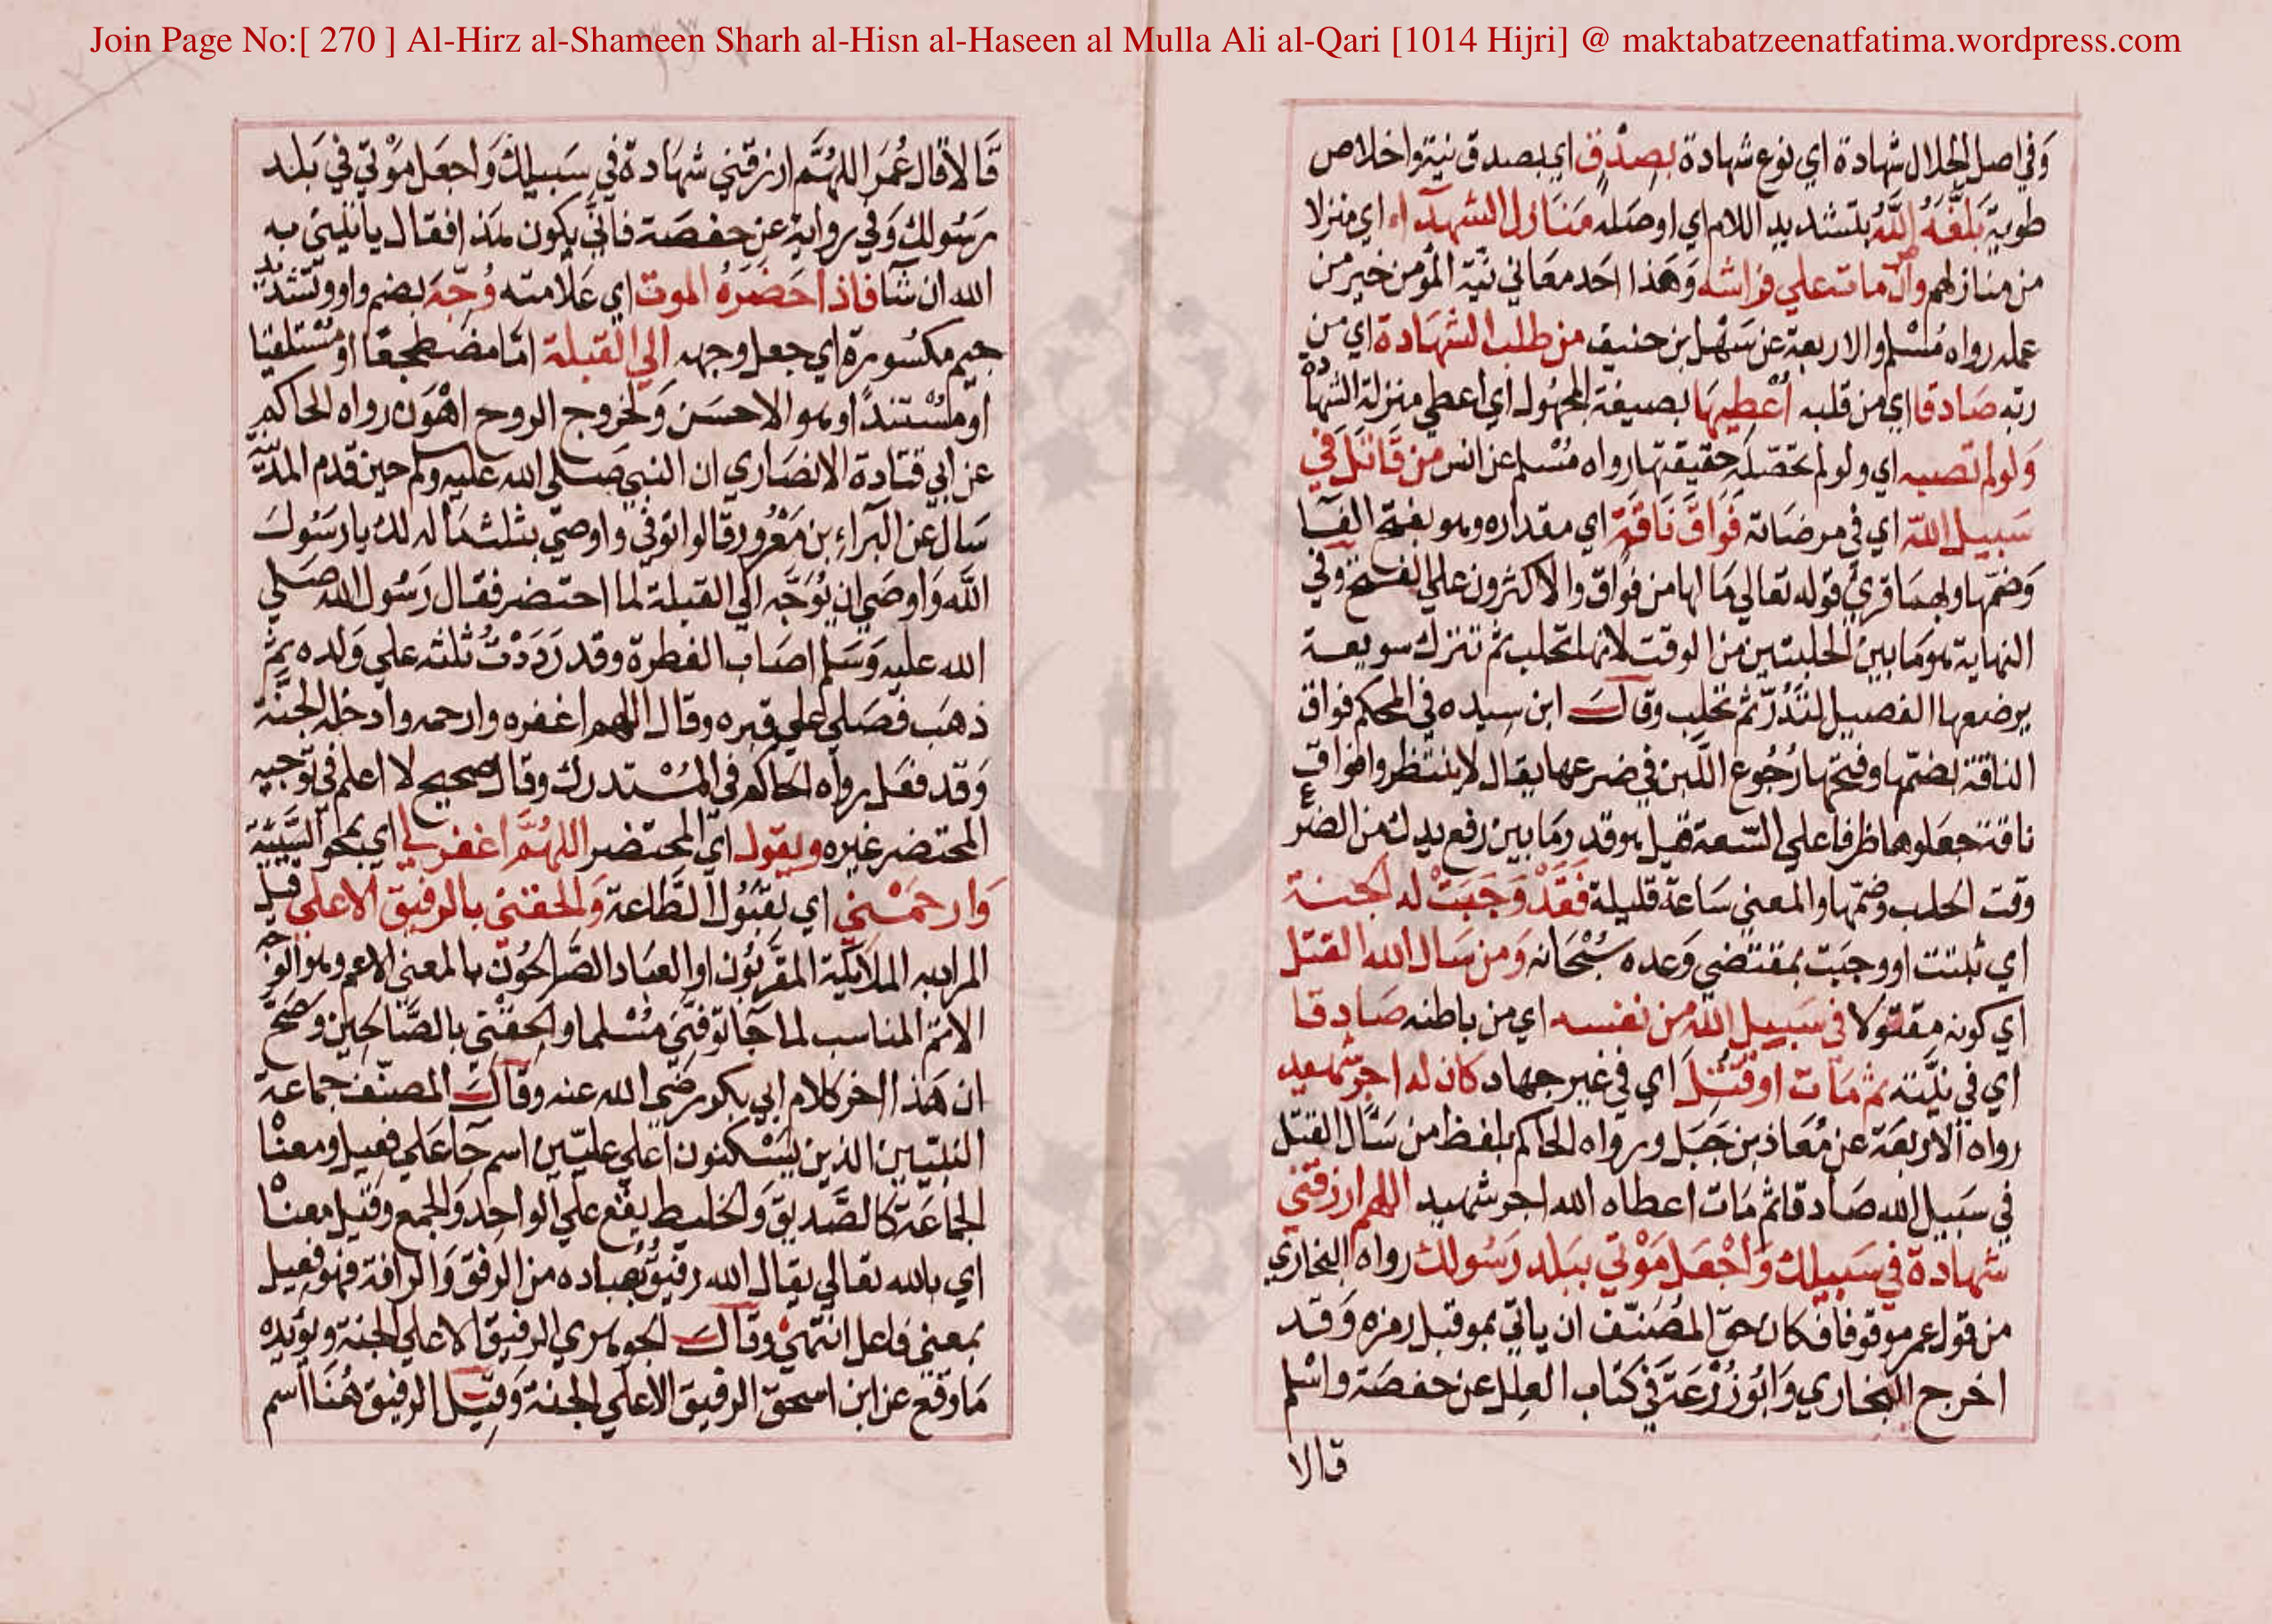 Join Page No:[ 270 ] Al-Hirz al-Shameen Sharh al-Hisn al-Haseen al Mulla Ali al-Qari [1014 Hijri] @ maktabatzeenatfatima.wordpress.com
وَفي اصل الجلال شهادة اي نوع شهادة بصِدْقٍ اي بصدق نيته واخلاص
طويته بَلَّغَهُ اللّٰهُ بتشديد اللام اي اوصله مَنَازل الشهدآء اي منزلا
من منازلهم وان مات على فراشه وَهَذا احَد معَاني نيّة المؤمن خير من
عمله رواه مُسْلم والاربعة عن سَهْل بن حنيف من طلب الشهَادة اي من
ربّه صَادقا اي من قلبه أُعْطِيهَا بصيغة المجهُول اي اعطي منزلة الشهادة
وَلولم تصبه اي ولولم تحصّل له حقيقتها رواه مُسْلم عن انس من قَاتَلَ في
سَبيل اللّٰه اي في مرضاته فَوَاقَ نَاقَة اي مقداره وهو بفتح الفآ
وَضمّها وبهما قرئ قوله تعالي مَا لها من فواق والاكثرون على الفتح وفي
النهاية هو مَا بين الحلبتين من الوقت لانها تحلب ثم تترك سويعة
يرضعها الفصيل لتَدُرّ ثم تحلب وقالَ ابن سِيده في المحكم فواق
الناقة بضمّها وفتحها رُجُوع اللّبن في ضرعها يقال لا ينتظروا فواق
ناقة جعلوها ظرفا على السّعة قيل هو قدر مَا بين رفع يدك من الضرع
وقت الحلب وضمّها والمعنى سَاعة قليلة فَقَدْ وَجَبَتْ له الجنة
اي ثبتت او وجبَت بمقتضى وَعده سُبْحَانه وَمن سَال الله القتل
اي كونه مقتولا في سَبيل اللّٰه من نفسه اي من باطنه صَادقا
اي في نيّته ثم مَات او قُتِلَ اي في غير جهاد كان له اجر شهيد
رواه الاربعَة عن مُعَاذ بن جَبَل ورواه الحاكم بلفظ من سَال القتل
في سَبيل الله صَادقا ثم مَات اعطاه الله اجر شهيد اللهم ارزقني
شهادة في سَبيلك وَاجْعَل مَوْتي ببَلد رَسُولك رواه البخاري
من قول عمر موقوفا فكان حق المُصَنّف ان ياتي بمو قبل رمزه وَقد
اخرج البخاري وَابُوزُرْعَة في كتاب العِلل عن حفصَة واسْلم
قالا
قَالا قال عُمَر اللهُمَّ ارزقني شهَادة في سَبيلك وَاجعَل مَوْتي في بَلد
رَسُولك وَفي رواية عن حفصَة فانّي يكون هَذا فقال ياتيني به
الله ان شآ فاذا حَضَرَهُ الموت اي عَلامته وُجّهَ بضم واو وتشديد
جيم مكسُورة اي جعل وجهه الى القبلة امّا مضطجعًا او مُسْتلقيَا
او مُسْتنداً وهو الاحسَن وَلخروج الروح اهْوَن رواه الحاكم
عن ابي قتادة الانصَاري ان النبي صَلى الله عليه وسلم حين قدم المدينة
سَال عن الْبَراءِ بن مَعْرُور قالوا توفي واوصي بثلث مَاله لك يا رسُولَ
اللّٰه وَاوصَي ان يُوَجَّه الي القبلة لما احتضر فقال رَسُول الله صَلي
الله عليه وَسَلم اصَاب الفطرة وقد رَدَدْتُ ثلثه على وَلده ثم
ذهَب فصَلى على قبره وقال اللهم اغفره وارحمه وادخله الجَنَّة
وَقد فعَل رواه الحاكم في المُسْتدرك وقال صحيح لا اعلم في توجيه
المحتضر غيره ويقول اي المحتضر اللهُمَّ اغفر لي اي بمحو السيّئة
وَارحَمْني اي بقبُول الطّاعة وَالحقني بالرفيق الاعلى قيل
المراد به الملائكة المقرّبُون او العبَاد الصّالحُون بالمعنى الاعم وهو الوجه
الاتم المناسب لما جآ توفّني مُسْلما والحِقْني بالصّالحين وَصَحَّ
ان هَذا اخر كلام ابي بكر رضي الله عنه وقالَ المصنّف جماعة
النبيّين الذين يَسْكنون اعلى علّيين اسم جآ عَلى فعيل ومعناه
الجماعَة كالصّديق وَالخليط يقع على الواحد وَالجمع وَقيل معناه
اي بالله تعالي يقال الله رفيق بعباده من الرفق وَالرافة فهو فعيل
بمعنى فاعل انتهى وقالَ الجوهري الرفيق الاعلى الجنة ويؤيده
مَا وقع عن ابن اسحق الرفيق الاعلي الجنة وَقيلَ الرفيق هُنَا اسم